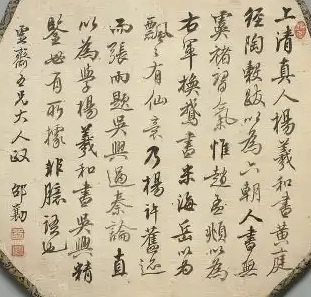 上清真人楊羲和書黃庭
經陶穀跋以為六朝人書無
虞褚習氣惟趙孟頫以為
右軍換鵝書米海岳以為
飄飄有仙意乃楊許舊迹
而張雨題吳興過秦論直
以為學楊羲和書吳興精
鑒必有所據非臆語也
雲齋五兄大人政 邵勷